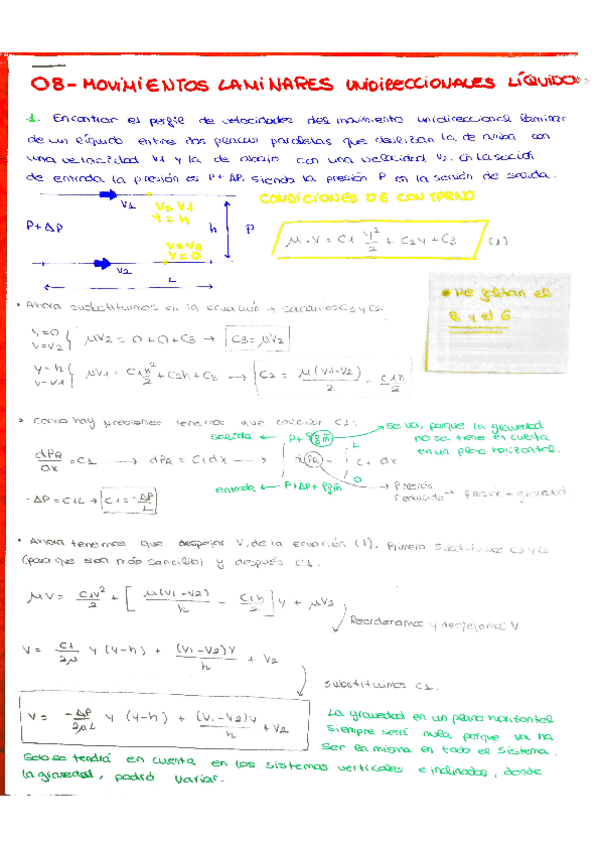 08- MOVIMIENTOS LAMINARES UNIDIRECCIONALES LÍQUIDOS
1. Encontrar el perfil de velocidades del movimiento unidireccional laminar
de un líquido entre dos placas paralelas que deslizan la de arriba con
una velocidad V1 y la de abajo con una velocidad V2. En la sección
de entrada la presión es P + ΔP, siendo la presión P en la sección de salida.
CONDICIONES DE CONTORNO
V1
V = V1
y = h
P+ΔP
h
P
μ·V = C1 y²/2 + C2y + C3 (1)
V = V2
y = 0
V2
L
• Me faltan el
2 y el 6
• Ahora sustituimos en la ecuación → sacamos C3 y C2.
y=0
V=V2
μV2 = 0 + 0 + C3 → C3 = μV2
y=h
V=V1
μV1 = C1h²/2 + C2h + C3 → C2 = μ(V1-V2)/h - C1h/2
• Como hay presiones tenemos que calcular C1:
se va, porque la gravedad
no se tiene en cuenta
en un plano horizontal.
salida ← P+ρgm
L
dPR/dx = C1 → dPR = C1dx → dPR = C1 dx
O
entrada ← P+ΔP+ρgm
Presión
reducida → presión + gravedad.
-ΔP = C1L → C1 = -ΔP/L
• Ahora tenemos que despejar V, de la ecuación (1). Primero sustituimos C2 y C3
(para que sea más sencillo) y después C1.
μV = C1y²/2 + [μ(V1-V2)/h - C1h/2] y + μV2
Reordenamos y despejamos V
V = C1/2μ y (y-h) + (V1-V2)y/h + V2
sustituimos C1.
V = -ΔP/2μL y (y-h) + (V1-V2)y/h + V2
La gravedad en un plano horizontal
siempre será nula porque va ha
ser la misma en todo el sistema.
Solo se tendrá en cuenta en los sistemas verticales e inclinados, donde
la gravedad, podrá variar.